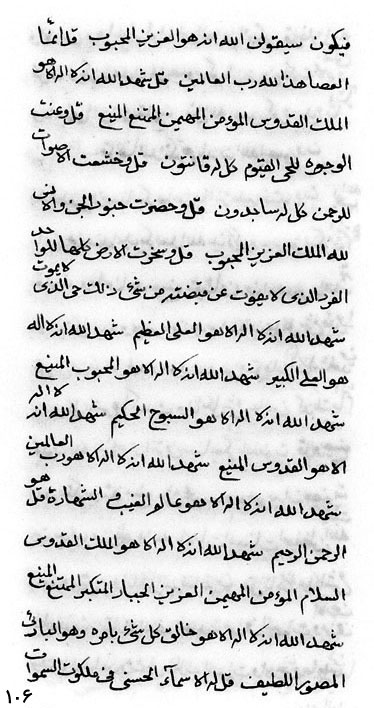 فيكون سيقولن الله انه هو العزيز المحبوب قل انما
العصا هذا لله رب العالمين قل شهد الله انه لا اله الا هو
الملك القدوس المؤمن المهيمن الممتنع المنيع قل وعنت
الوجوه للحي القيوم كل له قانتون قل وخشعت الاصوات
للرحمن كل له ساجدون قل وحضرت جنود الجن والانس
لله الملك العزيز المحبوب قل وسخرت الارض كلها للواحد
الفرد الذي لا يفوت عن قبضته من شئ ذلك حي الذي لا يموت
شهد الله انه لا اله الا هو العلي العظيم شهد الله انه لا اله
هو العلي الكبير شهد الله انه لا اله الا هو المحبوب المنيع
شهد الله انه لا اله الا هو السبوح الحكيم شهد الله انه لا اله
الا هو القدوس المنيع شهد الله انه لا اله الا هو رب العالمين
شهد الله انه لا اله الا هو عالم الغيب و الشهادة قل هو
الرحمن الرحيم شهد الله انه لا اله الا هو الملك القدوس
السلام المؤمن المهيمن العزيز الجبار المتكبر الممتنع المنيع
شهد الله انه لا اله الا هو خالق كل شئ بامره وهو البارئ
المصور اللطيف قل له الاسمآء الحسنى في ملكوت السموات
١٠۶